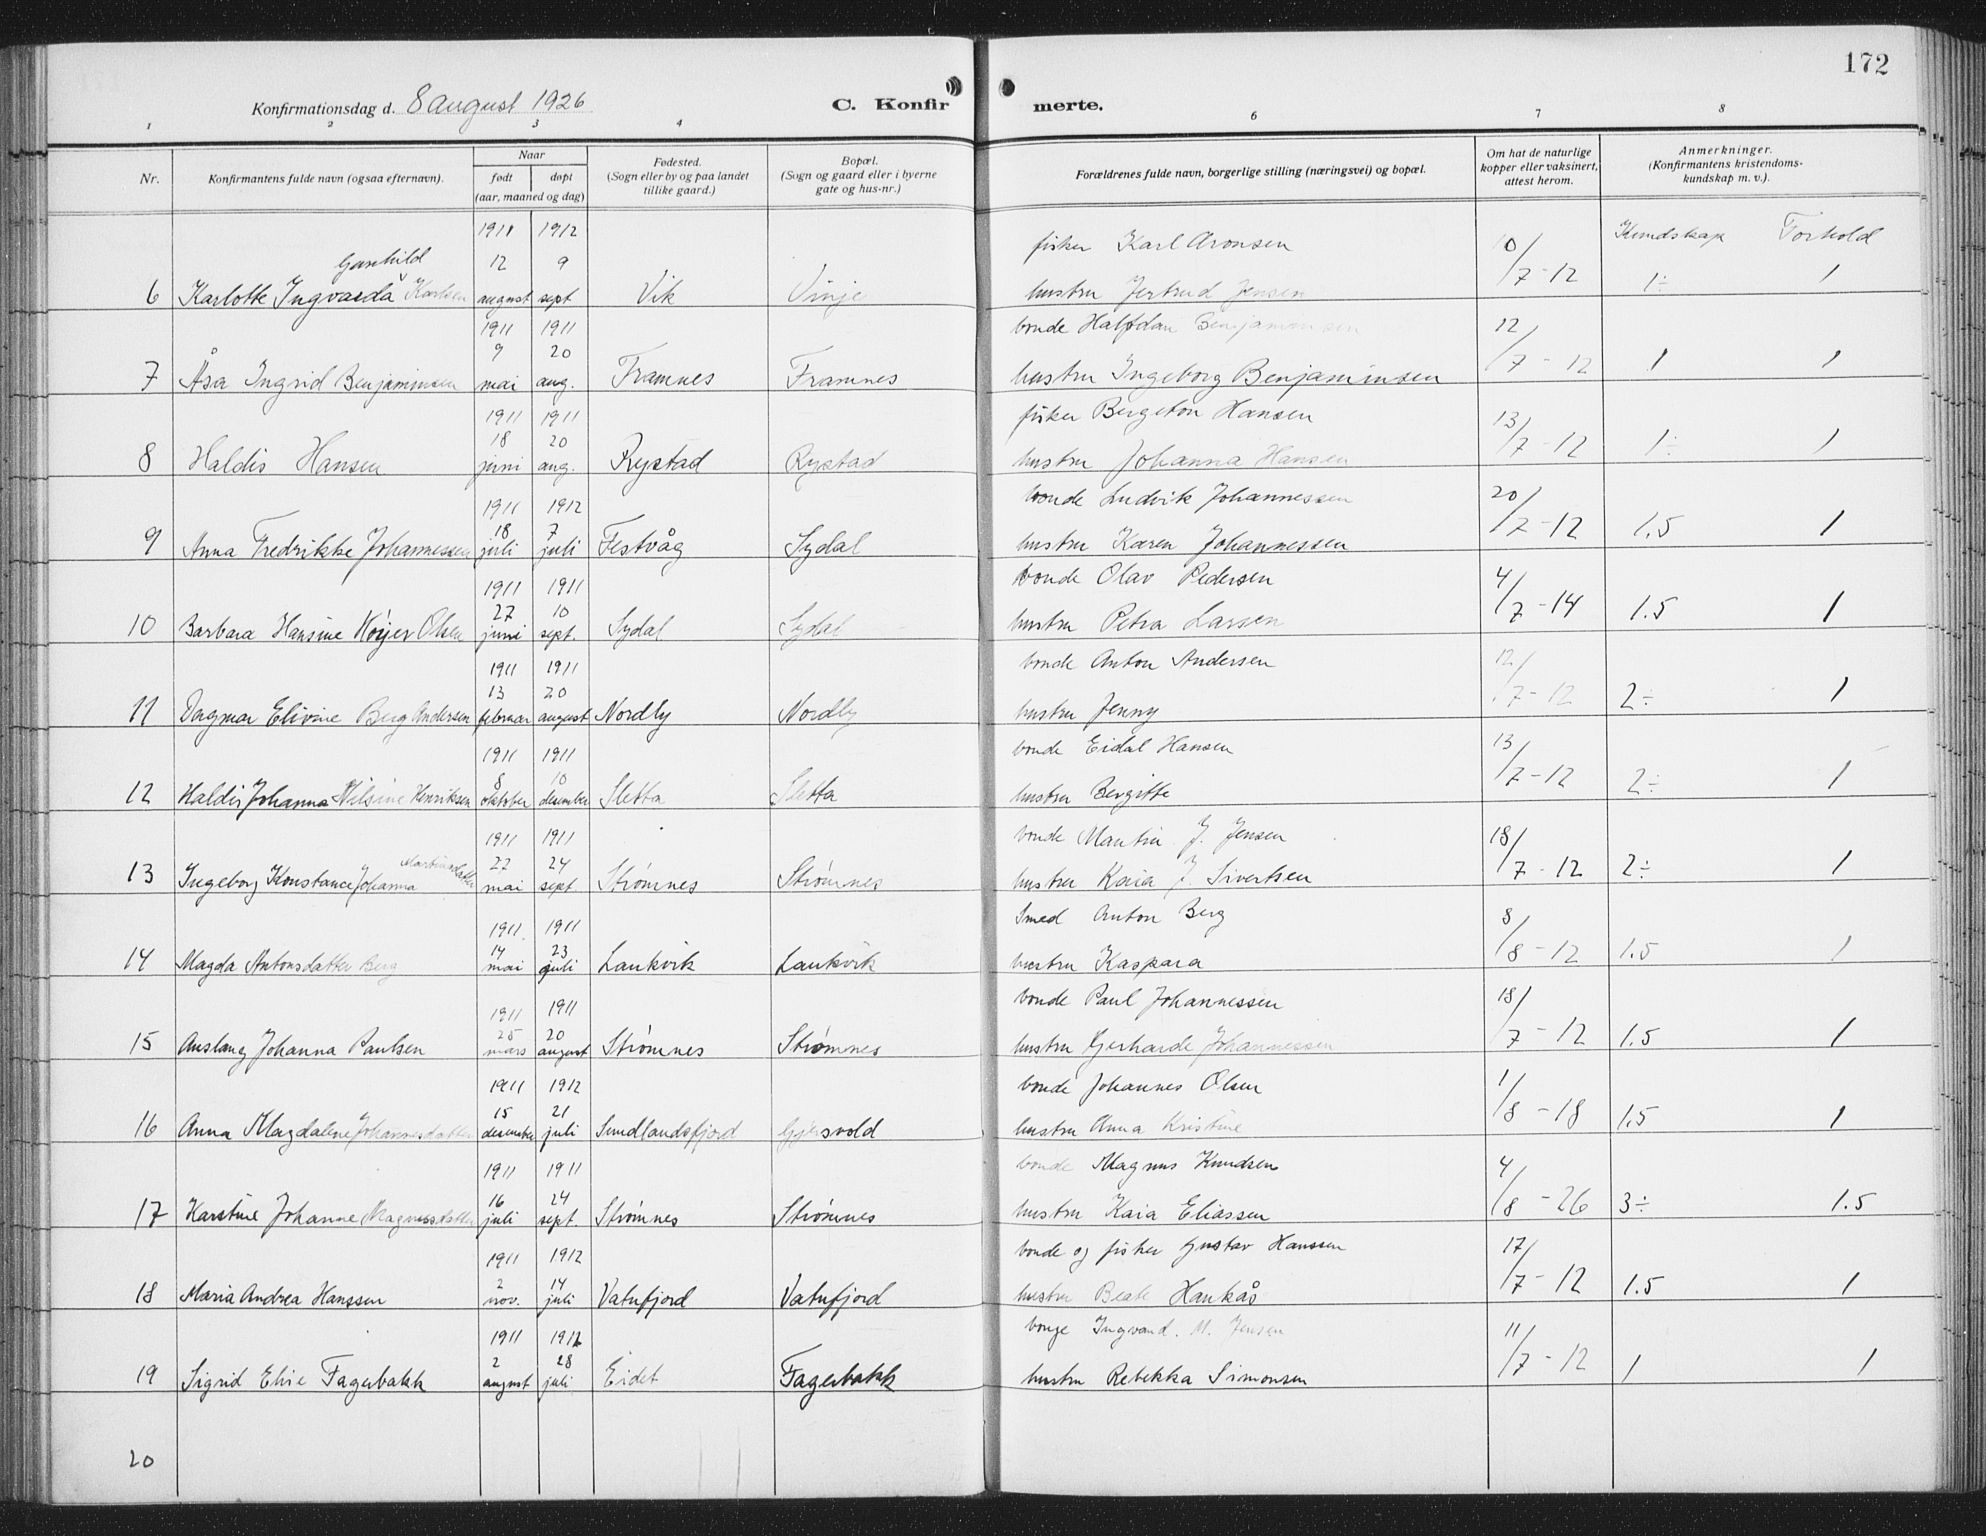 172
Konfirmationsdag d. 8 august 1926
C. Konfirmerte.
1 2 3 4 6 7 8
Nr.
Konfirmantens fulde navn (ogsaa efternavn).
Naar
født døpt
(aar, maaned og dag)
Fødested.
(Sogn eller by og paa landet
tillike gaard.)
Bopæl.
(Sogn og gaard eller i byerne
gate og hus-nr.)
Forældrenes fulde navn, borgerlige stilling (næringsvei) og bopæl.
Om hat de naturlige
kopper eller vaksinert,
attest herom.
Anmerkninger.
(Konfirmantens kristendoms-
kundskap m. v.).
Kundskap Forhold
1911 1912 fisker Karl Aronsen 10/
Gunhild 12 9
6 Karlotte Ingvarda Karlsen august sept Vik Vinje hustru Jertrud Jensen 7-12 1÷ 1
1911 1911 bonde Halfdan Benjaminsen 12/
9 20
7 Åsa Ingrid Benjaminsen mai aug. Framnes Framnes hustru Ingeborg Benjaminsen 7-12 1 1
1911 1911 fisker Bergeton Hansen 13/
18 20
8 Haldis Hansen juni aug. Rystad Rystad hustru Johanna Hansen 7-12 1÷ 1
1911 1912 bonde Ludvik Johannessen 20/
18 7
9 Anna Fredrikke Johannessen juli juli Festvåg Sydal hustru Karen Johannessen 7-12 1.5 1
1911 1911 bonde Olav Pedersen 4/
27 10
10 Barbara Hansine Köyer Olsen juni sept. Sydal Sydal hustru Petra Larsen 7-14 1.5 1
1911 1911 bonde Anton Andersen 12/
13 20
11 Dagmar Elivine Berg Andersen februar august Nordby Nordby hustru Jenny 7-12 2÷ 1
1911 1911 bonde Eidal Hansen 13/
8 10
12 Haldis Johanna Nilsine Henriksen oktober desember Sletta Sletta hustru Bergitte 7-12 2÷ 1
1911 1911 bonde Mantin J. Jensen 18/
Martinsdatter 22 24
13 Ingeborg Konstance Johanna mai sept. Strømnes Strømnes hustru Kaia J. Sivertsen 7-12 2÷ 1
1911 1911 Smed Anton Berg 8/
14 23
14 Magda Antonsdatter Berg mai juli Laukvik Laukvik hustru Kaspara 8-12 1.5 1
1911 1911 bonde Paul Johannessen 18/
25 20
15 Auslaug Johanna Paulsen mars august Strømnes Strømnes hustru Gjerharde Johannessen 7-12 1.5 1
1911 1912 bonde Johannes Olsen 1/
15 21
16 Anna Magdalene Johannesdatter desember juli Sundlandsfjord Gjersvold hustru Anna Kristine 8-18 1.5 1
1911 1911 bonde Magnus Knudsen 4/
16 24
17 Karstine Johanne Magnusdatter juli sept. Strømnes Strømnes hustru Kaia Eliassen 8-26 3÷ 1.5
1911 1912 bonde og fisker Gustav Hanssen 17/
2 14
18 Maria Andrea Hanssen nov. juli Vatufjord Vatufjord hustru Beate Haukås 7-12 1.5 1
1911 1912 bonge Ingvard. M. Jensen 11/
2 28
19 Sigrid Elvie Fagerbakk august juli Eidet Fagerbakk hustru Rebekka Simonsen 7-12 1 1
20